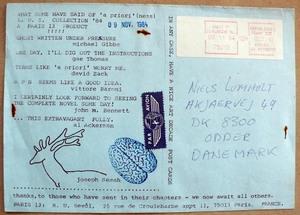 WHAT SOME HAVE SAID OF 'a priori'(ness)
COLLECTION '84
A PARIS 13 PRODUCT
09 NOV. 1984
GHOST WRITTEN UNDER PRESSURE
michael Gibbs
ONE DAY, I'LL DIG OUT THE INSTRUCTIONS
gae Thomas
TERMS LIKE 'a priori' WORRY ME.
david Zack
SEEMS LIKE A GOOD IDEA.
vittore Baroni
I CERTAINLY LOOK FORWARD TO SEEING
THE COMPLETE NOVEL SOME DAY!
john m. Bennett
...THIS EXTRAVAGANT FULLY.
al Ackerman
joseph
PAR AVION
IN ANY CASE HAVE A NICE DECADE
POST CARDS
NIELS LOMHOLT
AKJAERVEJ 49
DK 8300
ODDER
DANEMARK
thanks, to those who sent in their chapters - we now await all others.
PARIS 13: 25 rue de Croulebarbe 75013 Paris. FRANCE.